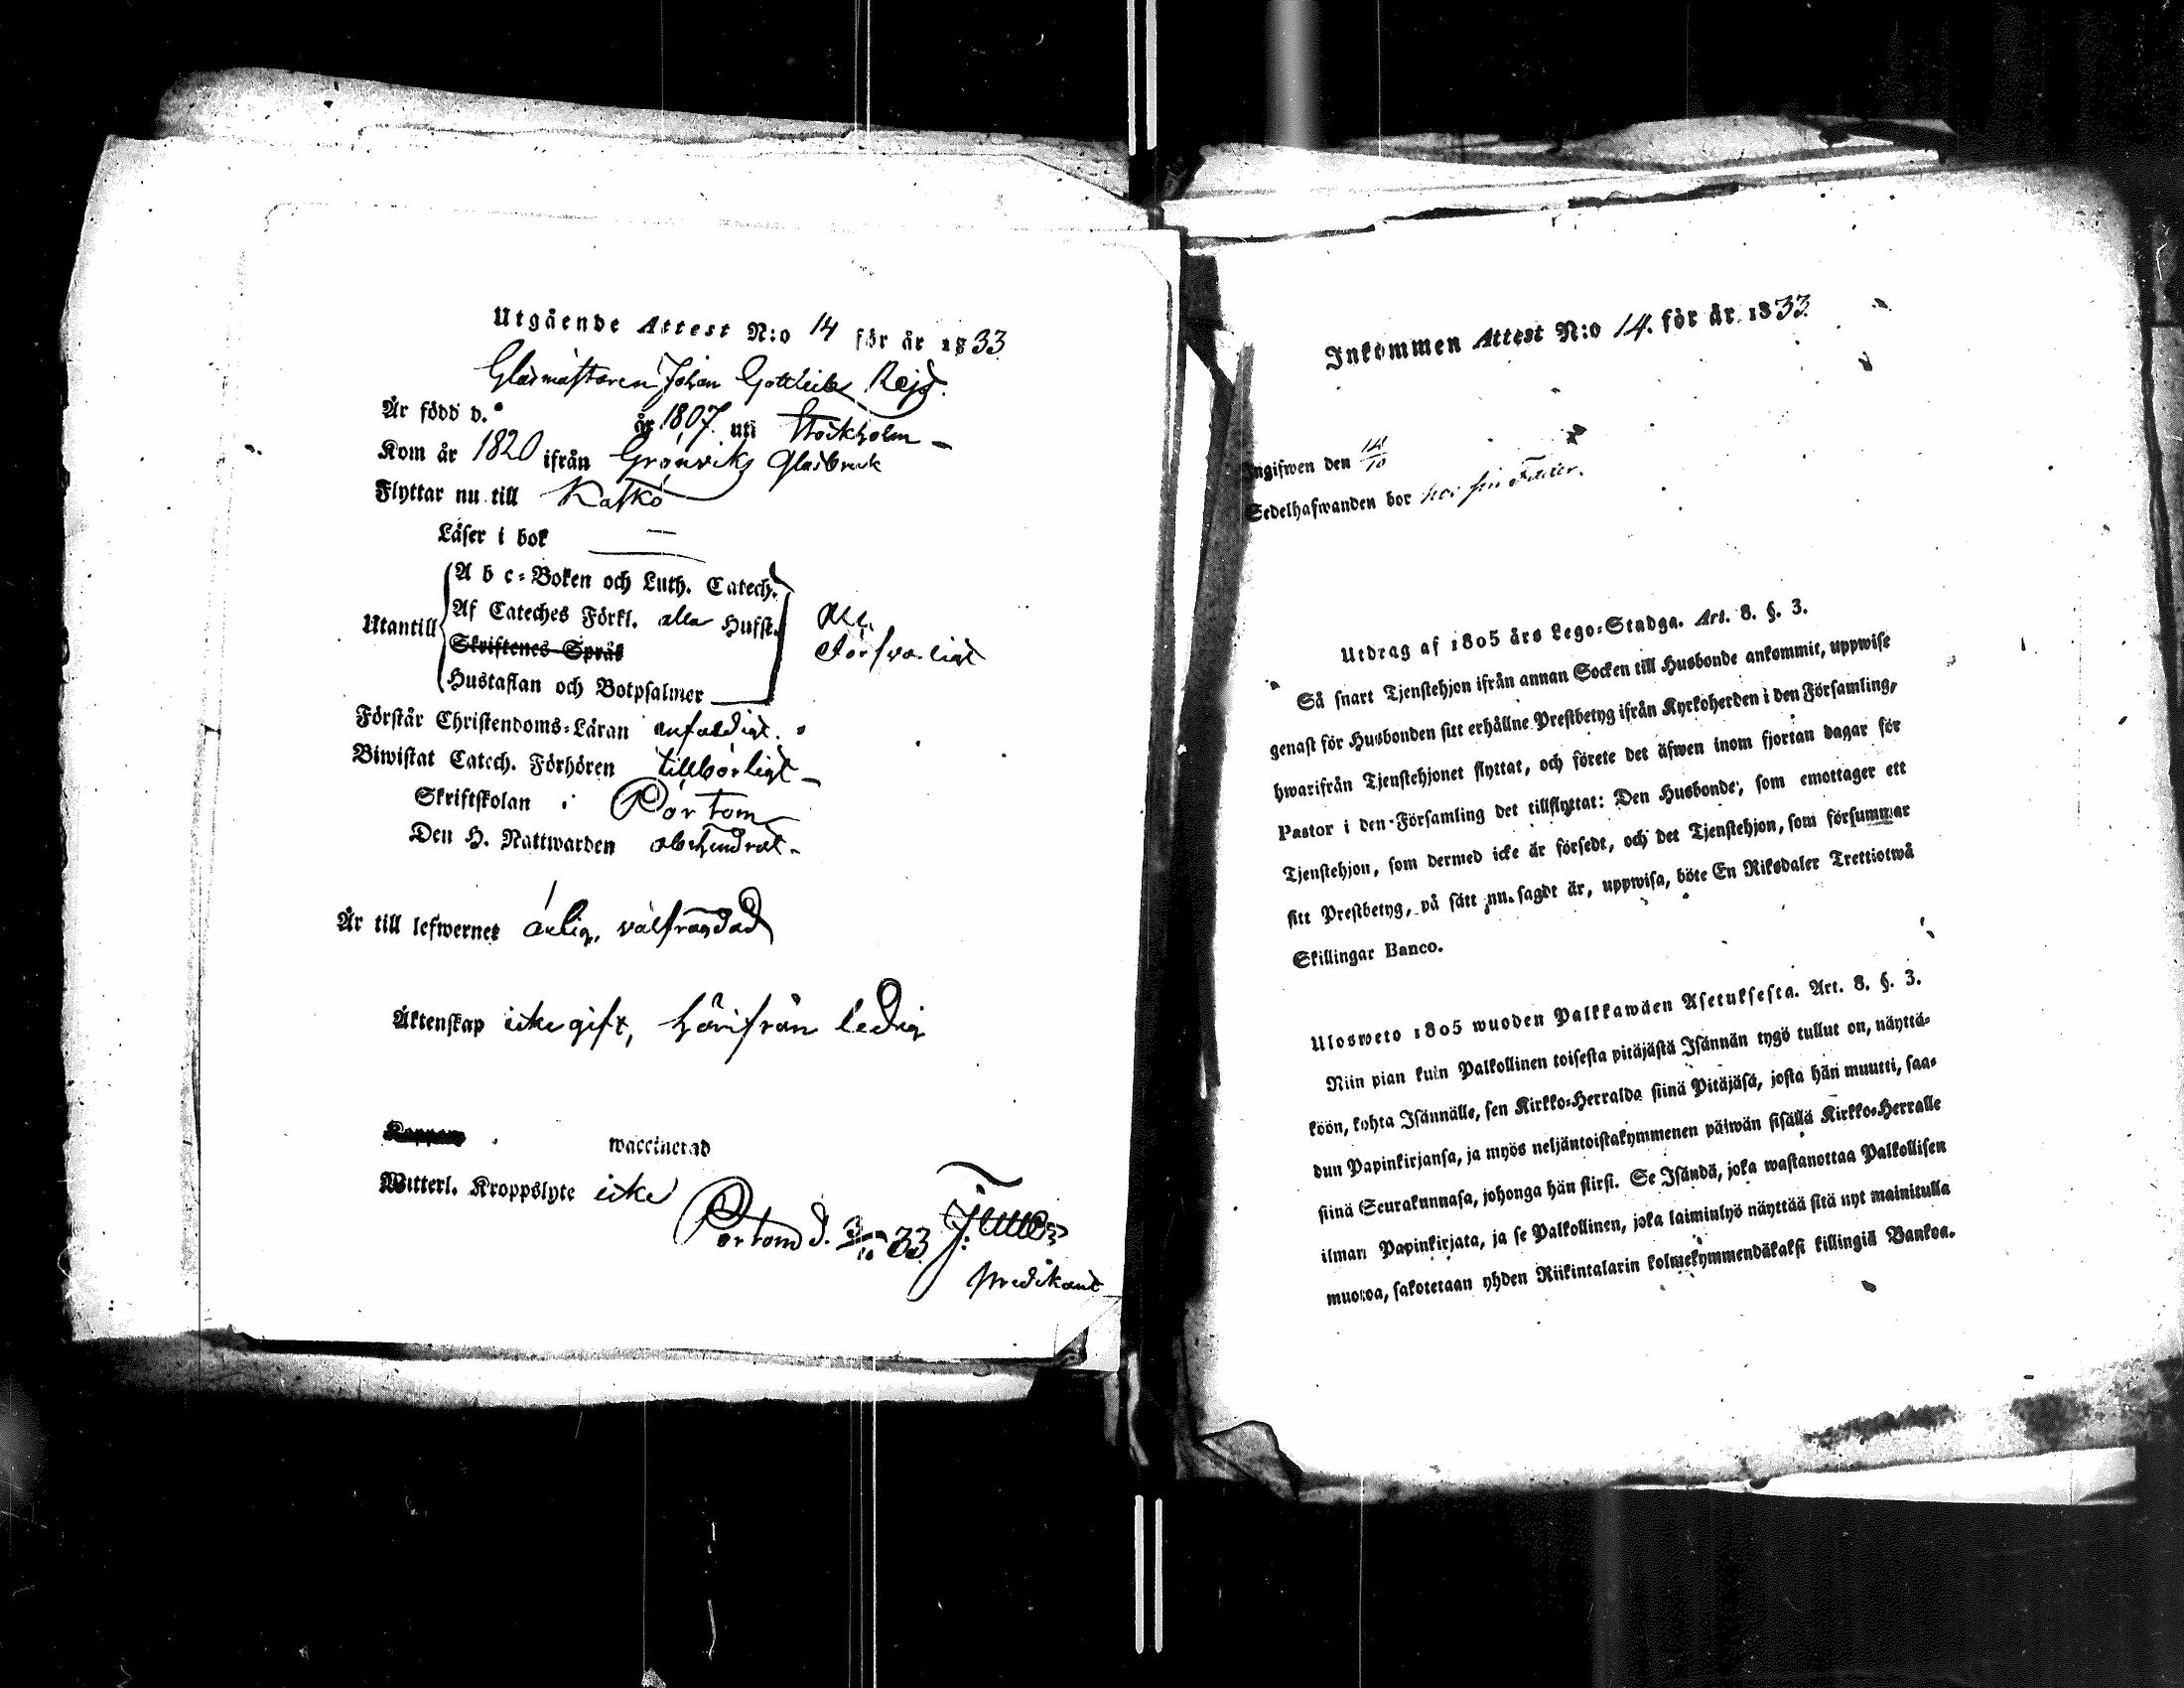 Utgående Attest N:o 14 för år 1833
Glasmästaren Johan Gottlieb Rejs.
Är född d. år 1807 uti Stockholm
Kom år 1820 ifrån Grönviks Glasbruk
Flyttar nu till Kaskö
Läser i bok
A b c-Boken och Luth. Catech.
Utantill Af Cateches Förkl. alla Husst. 
Skriftenes Språk försvarligt
Hustaflan och Botpsalmer
Förstår Christendoms-Läran enfaldigt.
Biwistat Catech. Förhören tillbörligt
Skriftskolan i Pörtom
Den H. Nattwarden
Är till lefwernet ärlig, välfrägdad
Äktenskap icke gift, härifrån ledig
Koppor waccinerad
Witterl. Kroppslyte icke
Pörtom d. 3/10 33
Predikant
Inkommen Attest N:o 14. för år 1833.
Ingifwen den 14/10
Sedelhafwanden bor hos sin Fader.
Utdrag af 1805 års Lego-Stadga. Art. 8. §. 3.
Så snart Tjenstehjon ifrån annan Socken till Husbonde ankommit, uppwise
genast för Husbonden sitt erhållne Prestbetyg ifrån Kyrkoherden i den Församling,
hwarifrån Tjenstehjonet flyttat, och förete det äfwen inom fjortan dagar för
Pastor i den Församling det tillflyttat: Den Husbonde, som emottager ett
Tjenstehjon, som dermed icke är försedt, och det Tjenstehjon, som försummar
sitt Prestbetyg, på sätt nu sagdt är, uppwisa, böte En Riksdaler Trettiotwå
Skillingar Banco.
Ulosweto 1805 wuoden Palkkawäen Asetuksesta. Art. 8. §. 3.
Niin pian kuin Palkollinen toisesta pitäjästä Isännän tygö tullut on, näyttä-
köön, kohta Isännälle, sen Kirkko-Herralda siinä Pitäjäsä, josta hän muutti, saa-
dun Papinkirjansa, ja myös neljäntoistakymmenen päiwän sisällä Kirkko-Herralle
siinä Seurakunnasa, johonga hän siirsi. Se Isändä, joka wastanottaa Palkollisen
ilman Papinkirjata, ja se Palkollinen, joka laiminlyö näyttää sitä nyt mainitulla
muotoa, sakotetaan yhden Riikintalarin kolmekymmendäkaksi killingiä Bankoa.